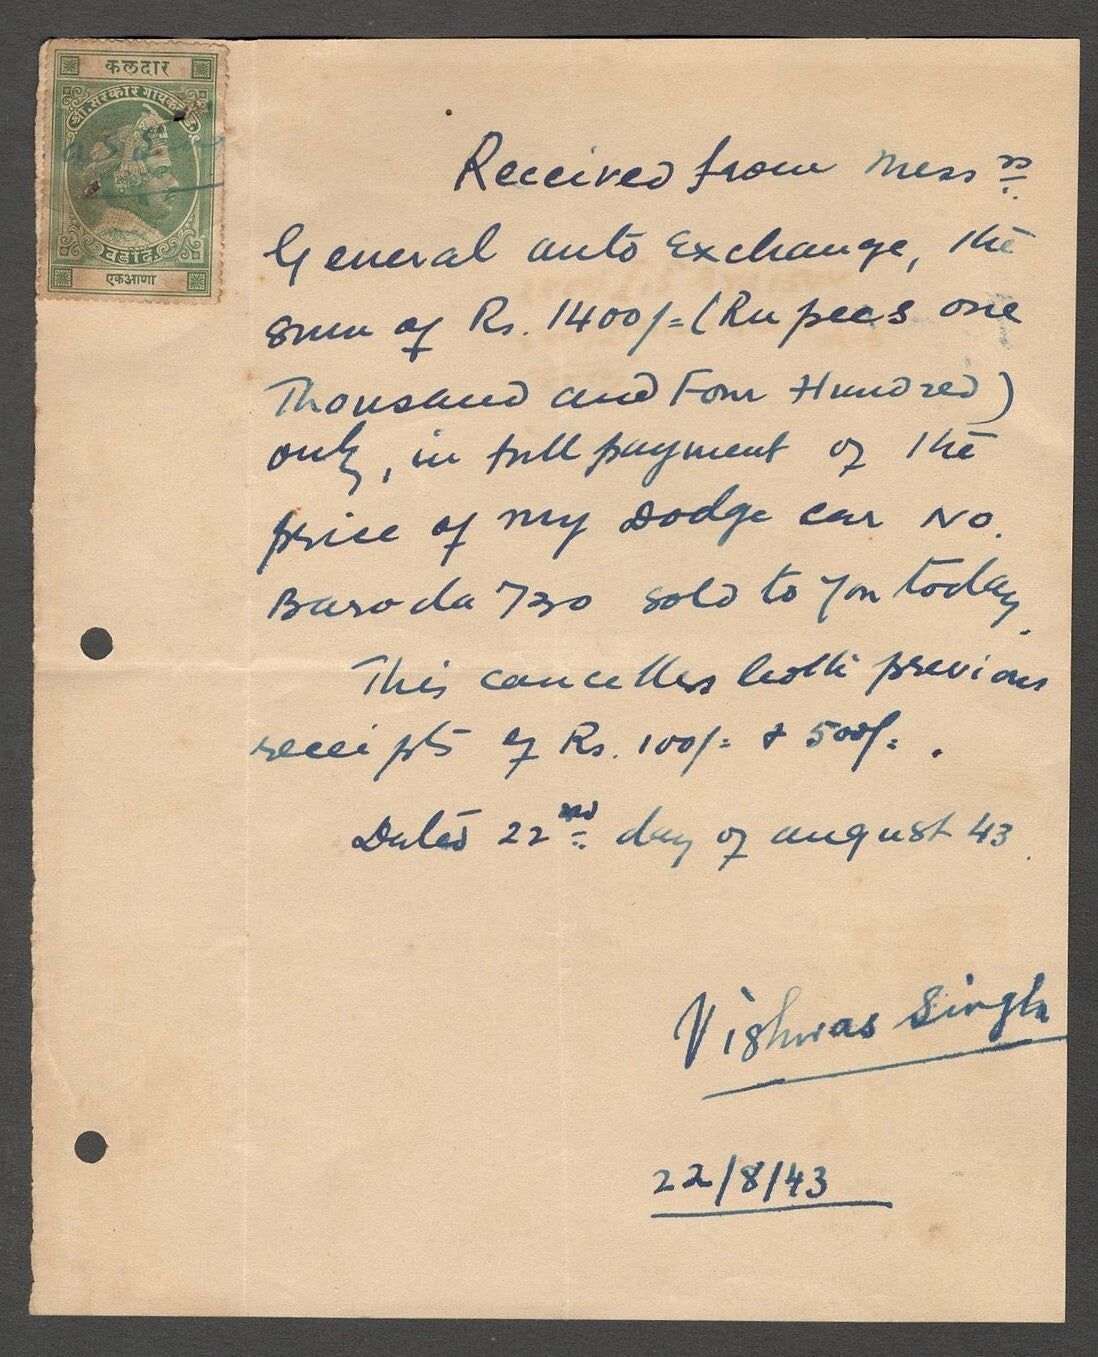 कलदार
श्री. सरकार गायकवाड
बडोदें.
एकआणा
Received from Mess rs
General auto Exchange, the
sum of Rs. 1400/= (Rupees one
Thousand and Four Hundred)
only, in full payment of the
price of my Dodge car No.
Baroda 730 sold to you today.
This cancelles both previous
receipts of Rs. 100/= & 500/= .
Dated 22nd day of august 43.
Vishwas Singh
22/8/43